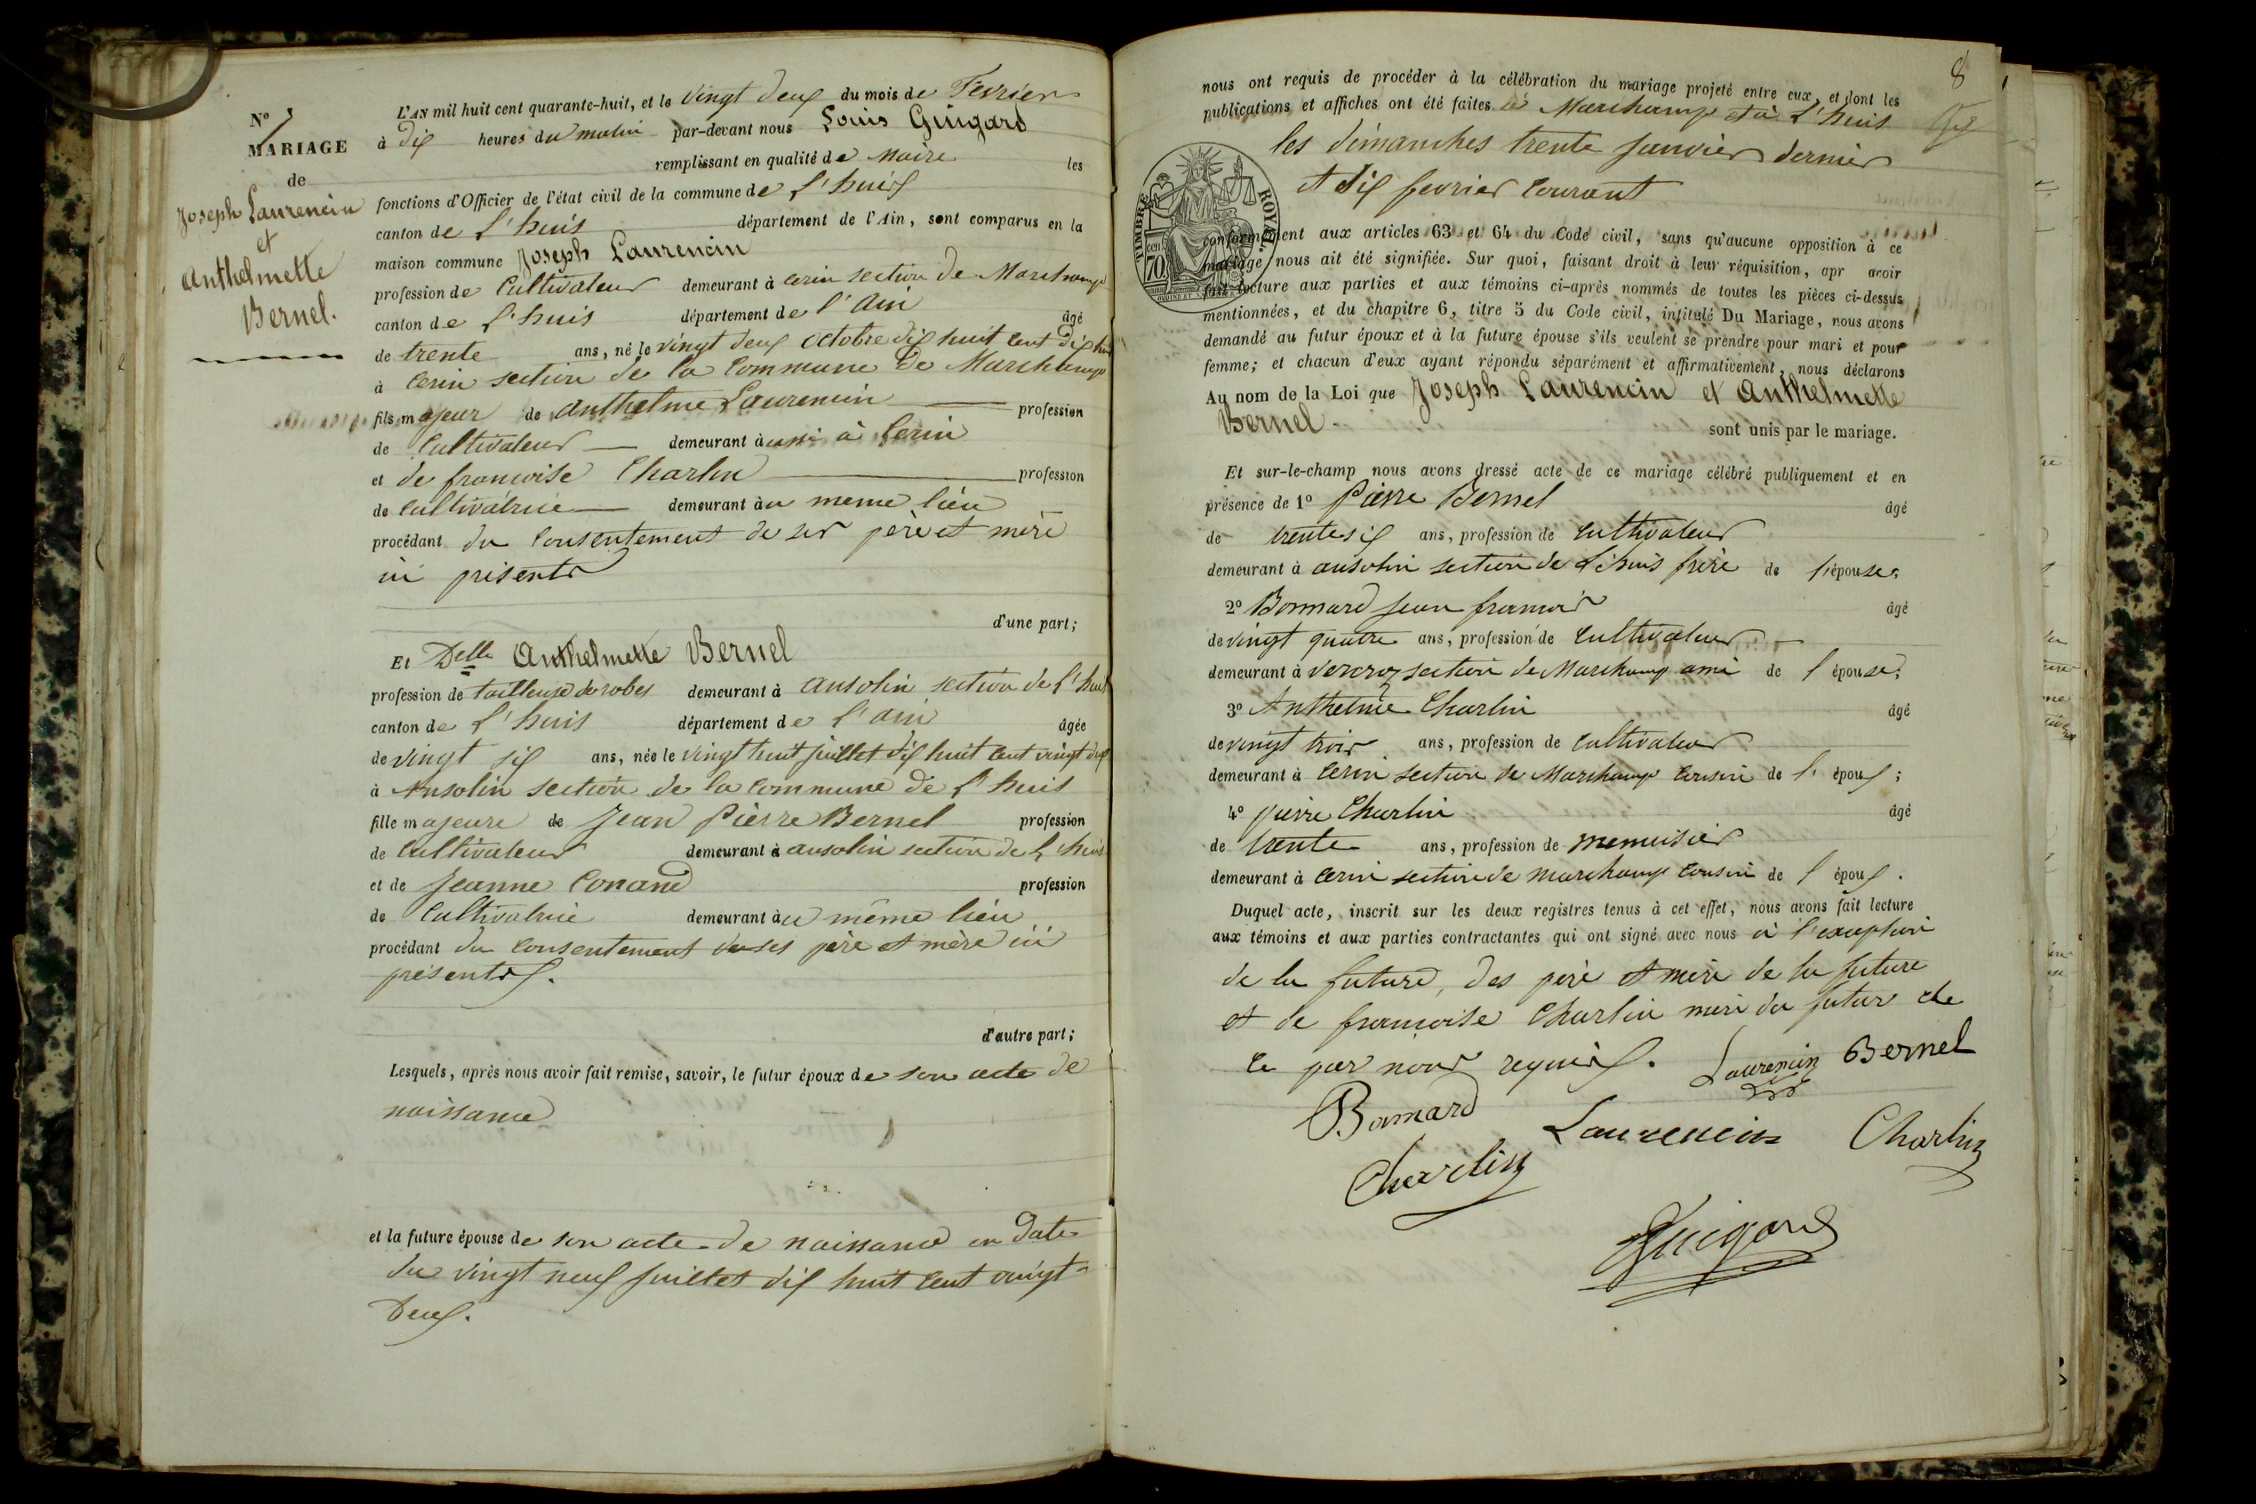 Nº 7
MARIAGE
de
Joseph Laurencin
et
Anthelmette
Bernel.
L'AN mil huit cent quarante-huit, et le vingt deux du mois de Fevrier
à dix heures du matin par-devant nous Louis Guigard
remplissant en qualité de Maire les
fonctions d'Officier de l'état civil de la commune de L'huis
canton de L'huis département de l'Ain, sont comparus en la
maison commune Joseph Laurencin
profession de Cultivateur demeurant à cerin section de Marchamp
canton de L'huis département de l'Ain âgé
de trente ans, né le vingt deux octobre dix huit cent dix huit
à cerin section de la Commune de Marchamp
fils majeur de Anthelme Laurencin profession
de Cultivateur demeurant à Cerin
et de francoise Charlin profession
de cultivatrice demeurant au meme lieu
procédant du Consentement de ses père et mère
ici présents
d'une part;
Et Delle Anthelmette Bernel
profession de tailleuse de robes demeurant à ansolin section de L'huis
canton de L'huis département de l'ain âgée
de vingt six ans, née le vingt huit juillet dix huit cent vingt deux
à Ansolin section de la commune de L'huis
fille majeure de Jean Pierre Bernel profession
de Cultivateur demeurant à ansolin section de L'huis
et de Jeanne Conand profession
de Cultivatrice demeurant au même lieu
procédant du consentement de ses père et mère ici
présents.
d'autre part;
Lesquels, après nous avoir fait remise, savoir, le futur époux de son acte de
naissance
et la future épouse de son acte de naissance en date
du vingt neuf juillet dix huit cent vingt
deux.
8
nous ont requis de procéder à la célébration du mariage projeté entre eux, et dont les
publications et affiches ont été faites à Marchamp et à L'huis
les dimanches trente janvier dernier
et six fevrier courant
TIMBRE ROYAL
70
conformément aux articles 63 et 64 du Code civil, sans qu'aucune opposition à ce
mariage nous ait été signifiée. Sur quoi, faisant droit à leur réquisition, apr avoir
fait lecture aux parties et aux témoins ci-après nommés de toutes les pièces ci-dessus
mentionnées, et du chapitre 6, titre 5 du Code civil, intitulé Du Mariage, nous avons
demandé au futur époux et à la future épouse s'ils veulent se prendre pour mari et pour
femme; et chacun d'eux ayant répondu séparément et affirmativement, nous déclarons
Au nom de la Loi que Joseph Laurencin et Anthelmette
Bernel
sont unis par le mariage.
Et sur-le-champ nous avons dressé acte de ce mariage célébré publiquement et en
présence de 1º Pierre Bernel âgé
de trente six ans, profession de cultivateur
demeurant à ansolin section de L'huis frère de l'épouse;
2º Bonnard jean francois âgé
de vingt quatre ans, profession de cultivateur
demeurant à vercroz section de Marchamp ami de l'épouse;
3º Anthelme Charlin âgé
de vingt trois ans, profession de cultivateur
demeurant à cerin section de Marchamp cousin de l'époux;
4º pierre Charlin âgé
de trente ans, profession de menuisier
demeurant à cerin section de marchamp cousin de l'époux.
Duquel acte, inscrit sur les deux registres tenus à cet effet, nous avons fait lecture
aux témoins et aux parties contractantes qui ont signé avec nous à l'exception
de la future, des père et mère de la future
et de francoise Charlin mère du futur de
ce par nous requis. Laurencin Bernel
Bonnard
Laurencin Charlin
Charlin
Guigard